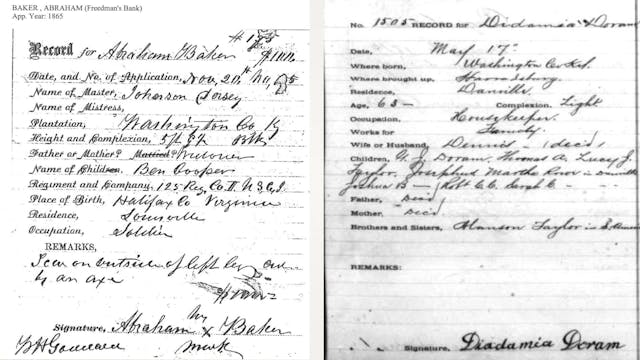 BAKER , ABRAHAM (Freedman's Bank)
App. Year: 1865
# 155
Record for Abraham Baker
Date, and No. of Application, Nov, 20th
Name of Master, Johnson Dorsey
Name of Mistress,
Plantation, Washington Co K
Height and Complexion, 5 ft
Father or Mother? Married? Widower
Name of Children, Ben Cooper
Regiment and Company, 125 Reg, Co
Place of Birth, Halifax Co Virginia
Residence, Louisville
Occupation, Soldier
REMARKS,
Scar on outside of left leg
by an axe
Signature, Abraham his x mark Baker
No. 1505 RECORD FOR Didamia Doram
Date, May 17th
Where born, Washington Co Ky
Where brought up, Harrodsburg
Residence, Danville
Age, 63 Complexion, Light
Occupation, Housekeeper.
Works for Family
Wife or Husband, Dennis - (dec'd)
Children, G. Doram, Thomas A. Lucy J.
Taylor, Josephus Martha
Joshua B - Robt C.C. Sarah E
Father, Dead
Mother, Dec'd
Brothers and Sisters, Hanson Taylor
REMARKS:
Signature, Diadamia Doram